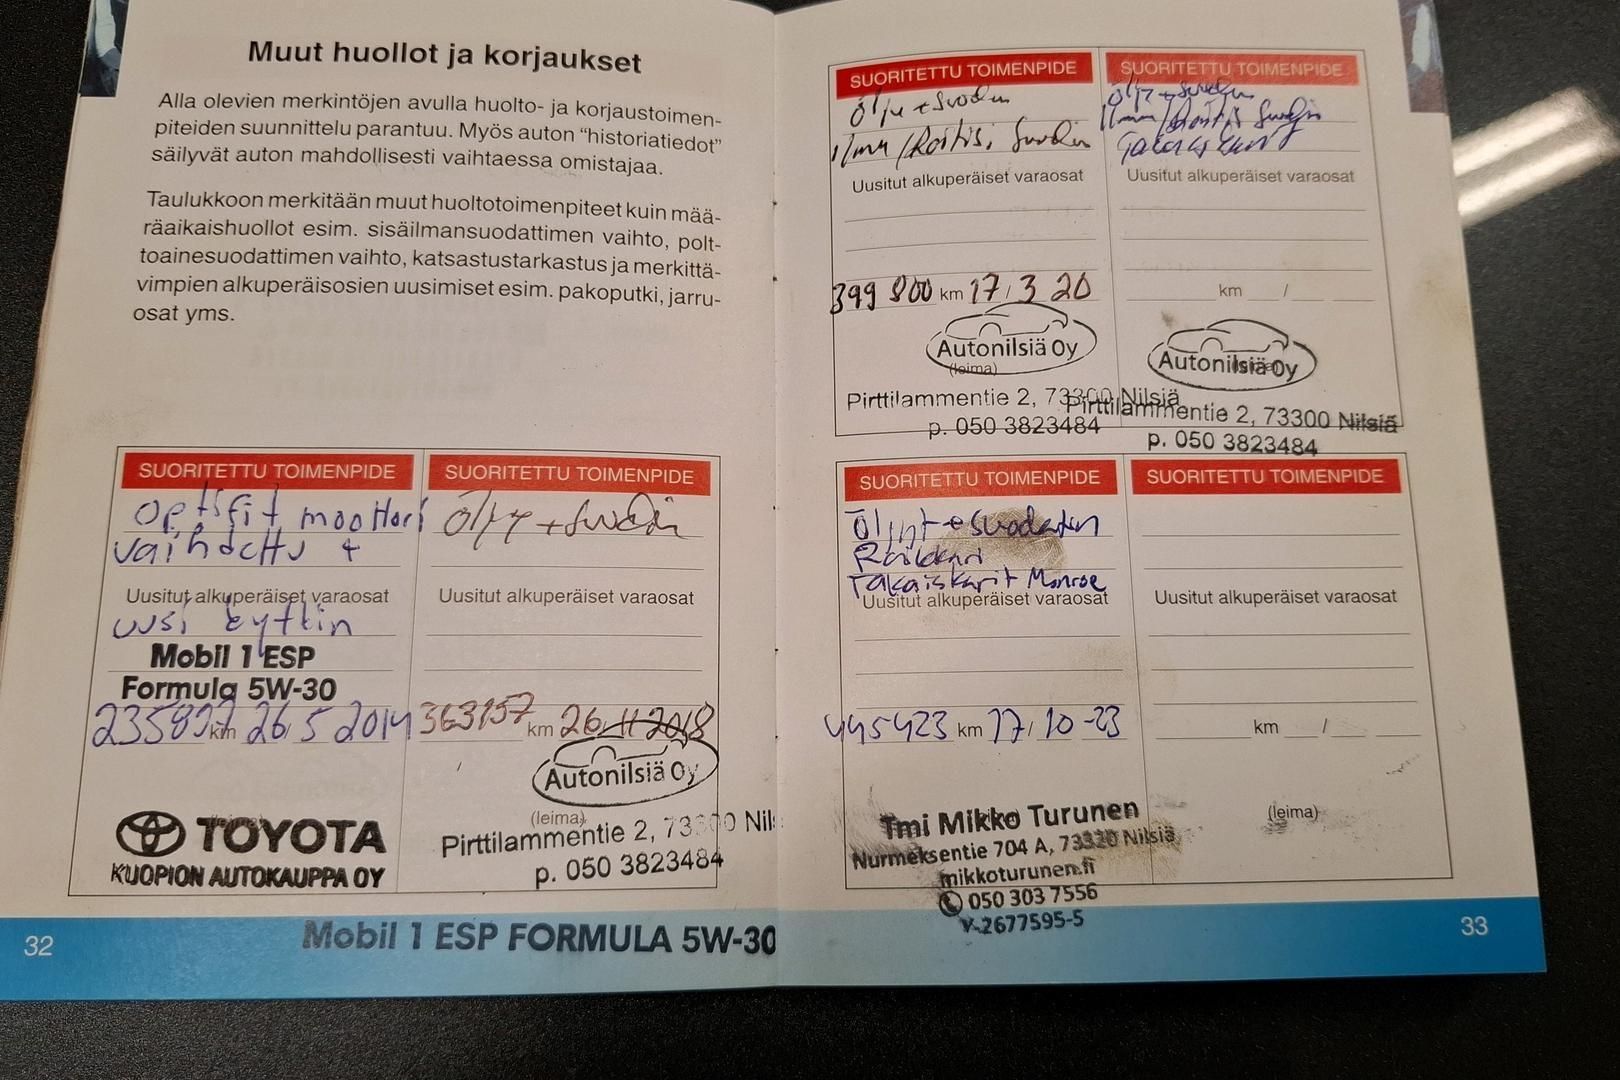 Muut huollot ja korjaukset
Alla olevien merkintöjen avulla huolto- ja korjaustoimen-
piteiden suunnittelu parantuu. Myös auton “historiatiedot”
säilyvät auton mahdollisesti vaihtaessa omistajaa.
Taulukkoon merkitään muut huoltotoimenpiteet kuin mää-
räaikaishuollot esim. sisäilmansuodattimen vaihto, polt-
toainesuodattimen vaihto, katsastustarkastus ja merkittä-
vimpien alkuperäisosien uusimiset esim. pakoputki, jarru-
osat yms.
SUORITETTU TOIMENPIDE
optifit moottori
vaihdettu +
Uusitut alkuperäiset varaosat
uusi kytkin
Mobil 1 ESP
Formula 5W-30
km 26 5 2014
(leima)
TOYOTA
KUOPION AUTOKAUPPA OY
SUORITETTU TOIMENPIDE
Öljy + suodin
Uusitut alkuperäiset varaosat
363157 km 26 11 2018
Autonilsiä Oy
(leima)
Pirttilammentie 2, 73300 Nils
p. 050 3823484
Mobil 1 ESP FORMULA 5W-30
32
SUORITETTU TOIMENPIDE
Öljy + suodin
ilma/Raitis. suodin
Uusitut alkuperäiset varaosat
399 800 km 17/3 20
Autonilsiä Oy
(leima)
Pirttilammentie 2, 73300 Nilsiä
p. 050 3823484
SUORITETTU TOIMENPIDE
Öljy + suodin
ilma/Raitis
Uusitut alkuperäiset varaosat
km / 
Autonilsiä Oy
Pirttilammentie 2, 73300 Nilsiä
p. 050 3823484
SUORITETTU TOIMENPIDE
Öljyt + suodatin
Takaiskarit Monroe
Uusitut alkuperäiset varaosat
445423 km 17/10 -23
Tmi Mikko Turunen
Nurmeksentie 704 A, 73320 Nilsiä
mikkoturunen.fi
050 303 7556
Y-2677595-5
SUORITETTU TOIMENPIDE
Uusitut alkuperäiset varaosat
km /
(leima)
33